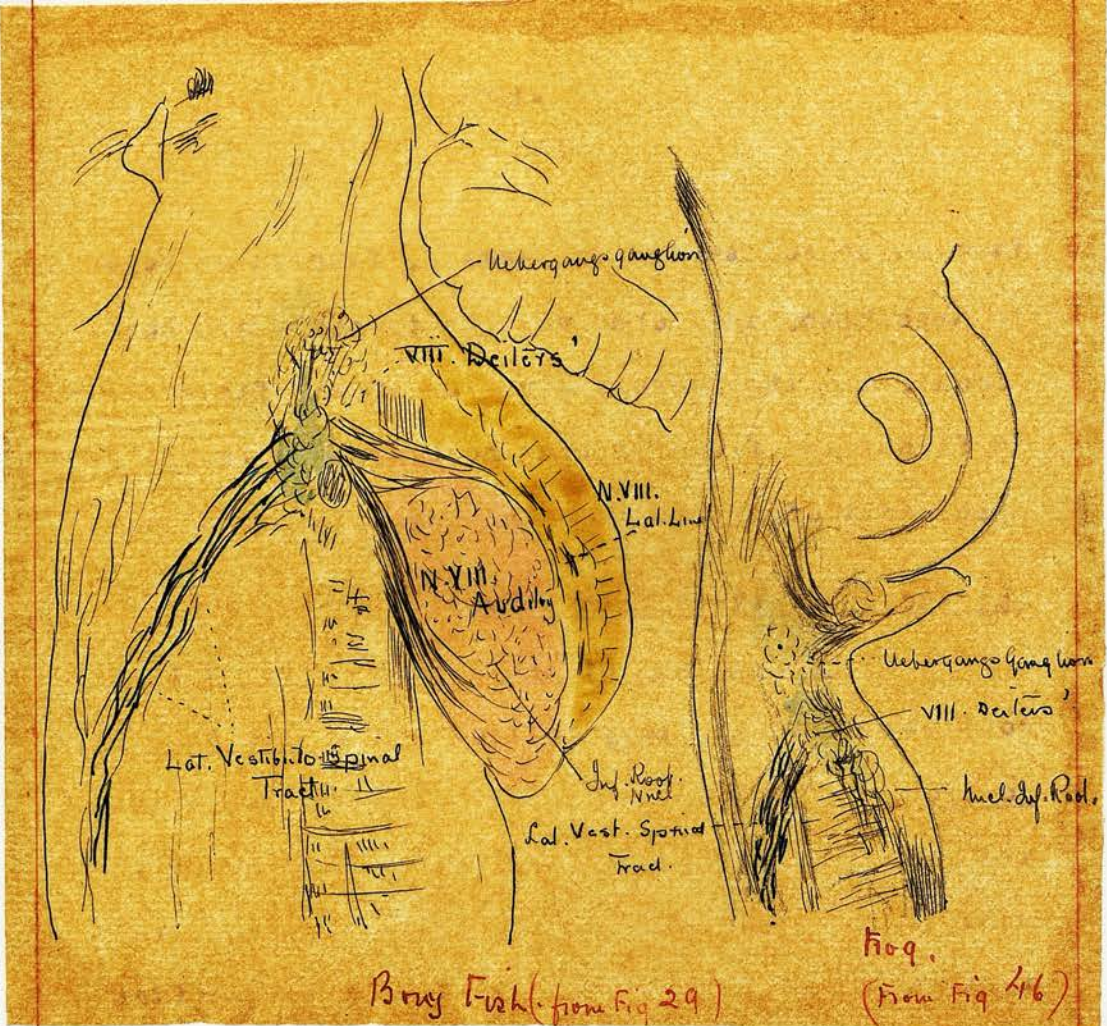 Uebergangs ganglion
VIII. Deiters'
N.VIII.
Lat. Line
N.VIII.
Auditory
Lat. Vestibulo-Spinal
Tract.
Inf. Root.
Nucl.
Lat. Vest. Spinal
Tract.
Uebergangs Ganglion
VIII. Deiters'
Nucl. Inf. Root.
Bony Fish (from Fig 29)
Frog.
(From Fig 46)